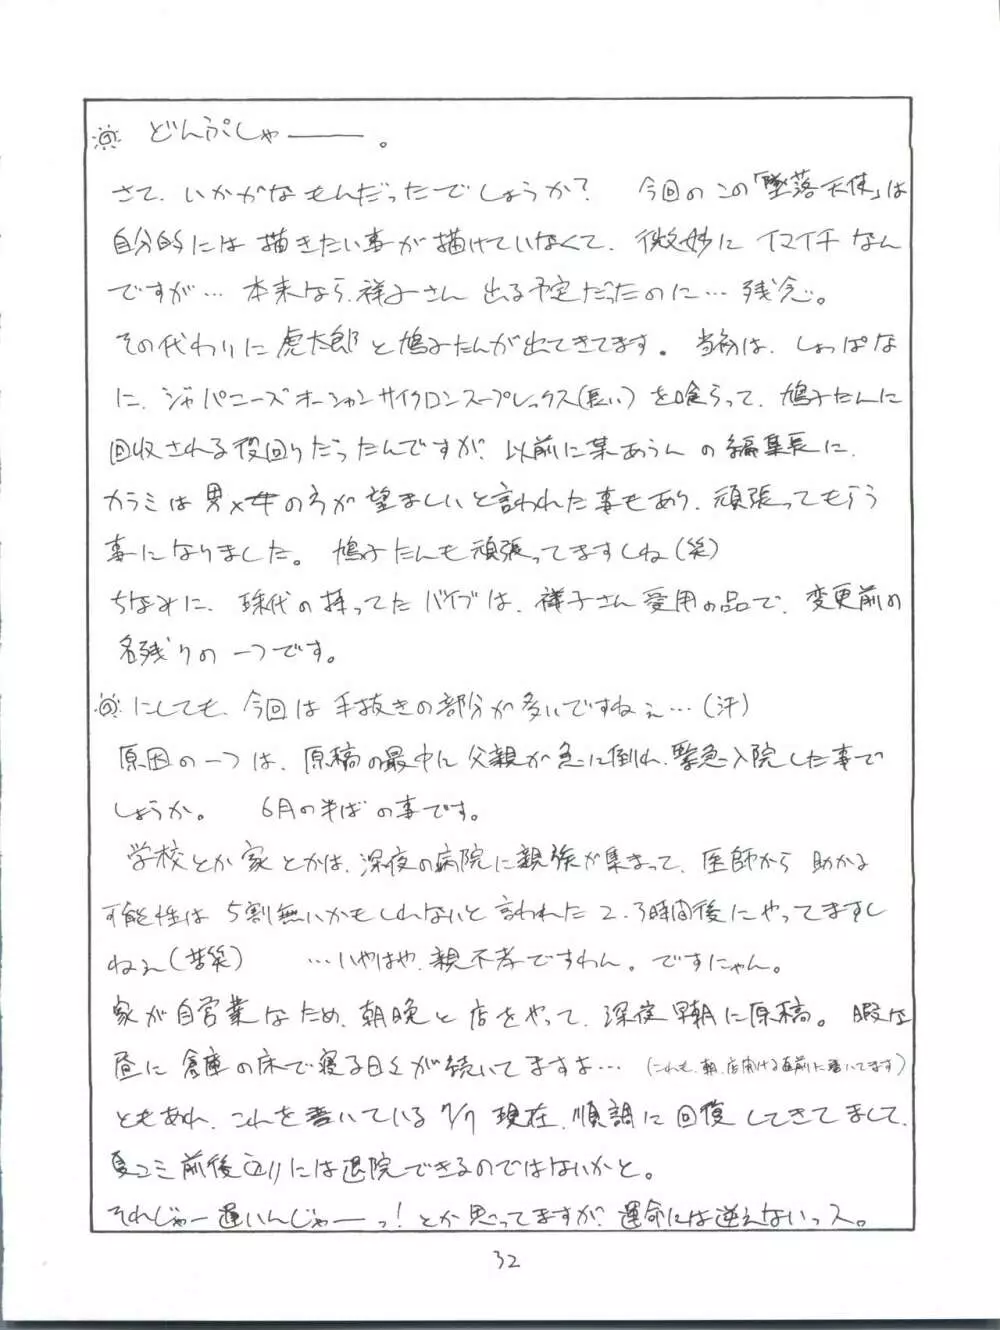 どんぷしゃーーー。
さて、いかがなもんだったでしょうか？ 今回のこの「堕落天使」は
自分的には描きたい事が描けていなくて、微妙にイマイチなん
ですが… 本来なら、祥子さん出る予定だったのに… 残念。
その代わりに虎太郎と鳩子たんが出てきてます。当初は、しょっぱな
に、ジャパニーズオーシャンサイクロンスープレックス(長い)を喰らって、鳩子たんに
回収される役回りだったんですが、以前に某あうんの編集長に、
カラミは男×女の方が望ましいと言われた事もあり、頑張ってもらう
事になりました。鳩子たんも頑張ってますしね(笑)
ちなみに、珠代の持ってたバイブは、祥子さん愛用の品で、変更前の
名残りの一つです。
にしても、今回は手抜きの部分が多いですねぇ…(汗)
原因の一つは、原稿の最中に父親が急に倒れ、緊急入院した事で
しょうか。 6月の半ばの事です。
学校とか家とかは、深夜の病院に親族が集まって、医師から助かる
可能性は5割無いかもしれないと言われた2、3時間後にやってますし
ねぇ(苦笑) …いやはや、親不孝ですわん。ですにゃん。
家が自営業なため、朝晩と店をやって、深夜早朝に原稿。暇な
昼に倉庫の床で寝る日々が続いてますよ…(これも、朝、店開ける直前に書いてます)
ともあれ、これを書いている7/7現在、順調に回復してきてまして、
夏コミ前後辺りには退院できるのではないかと。
それじゃー遅いんじゃーーっ！とか思ってますが、運命には逆えないっス。
32